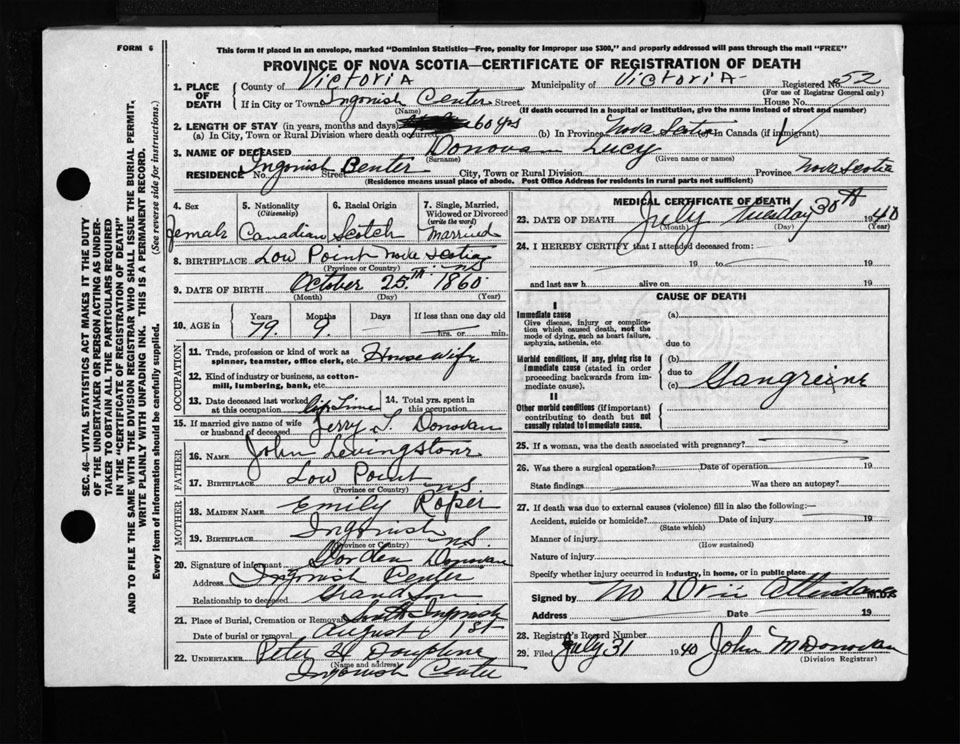 FORM 6
This form if placed in an envelope, marked "Dominion Statistics—Free, penalty for improper use $300," and properly addressed will pass through the mail "FREE"
PROVINCE OF NOVA SCOTIA—CERTIFICATE OF REGISTRATION OF DEATH
1. PLACE OF DEATH
County of Victoria Municipality of Victoria Registered No. 52
(For use of Registrar General only)
If in City or Town Ingonish Center Street House No.
(Name) (If death occurred in a hospital or institution, give the name instead of street and number)
2. LENGTH OF STAY (in years, months and days)
(a) In City, Town or Rural Division where death occurred 60 yrs (b) In Province Nova Scotia In Canada (if immigrant)
3. NAME OF DECEASED Donovan Lucy
(Surname) (Given name or names)
RESIDENCE No. Ingonish Street Center City, Town or Rural Division Province Nova Scotia
(Residence means usual place of abode. Post Office Address for residents in rural parts not sufficient)
4. Sex
Female
5. Nationality
(Citizenship)
Canadian
6. Racial Origin
Scotch
7. Single, Married, Widowed or Divorced
(write the word)
Married
8. BIRTHPLACE Low Point Nova Scotia
(Province or Country) NS
9. DATE OF BIRTH October 25th 1860
(Month) (Day) (Year)
10. AGE in
Years Months Days If less than one day old
79 9 hrs. or min.
OCCUPATION
11. Trade, profession or kind of work as spinner, teamster, office clerk, etc. House wife
12. Kind of industry or business, as cotton-mill, lumbering, bank, etc.
13. Date deceased last worked at this occupation life Time
14. Total yrs. spent in this occupation
15. If married give name of wife or husband of deceased Jerry S. Donovan
FATHER
16. Name John Levingstone
17. Birthplace Low Point
(Province or Country) NS.
MOTHER
18. Maiden Name Emily Roper
19. Birthplace Ingonish
(Province or Country) NS.
20. Signature of informant Gorden Donovan
Address Ingonish Center
Relationship to deceased Grandson
21. Place of Burial, Cremation or Removal South Ingonish
Date of burial or removal August 1st
22. UNDERTAKER Peter
(Name and address)
Ingonish Center
MEDICAL CERTIFICATE OF DEATH
23. DATE OF DEATH July Tuesday 30th 1940
(Month) (Day)
24. I HEREBY CERTIFY that I attended deceased from:
19 to 19
and last saw h alive on 19
CAUSE OF DEATH
I
Immediate cause
Give disease, injury or complication which caused death, not the mode of dying, such as heart failure, asphyxia, asthenia, etc.
(a)
due to
Morbid conditions, if any, giving rise to immediate cause (stated in order proceeding backwards from immediate cause).
(b)
due to
(c) Gangreine
II
Other morbid conditions (if important) contributing to death but not causally related to immediate cause.
25. If a woman, was the death associated with pregnancy?
26. Was there a surgical operation? Date of operation 19
State findings Was there an autopsy?
27. If death was due to external causes (violence) fill in also the following:—
Accident, suicide or homicide? Date of injury 19
(State which)
Manner of injury
(How sustained)
Nature of injury
Specify whether injury occurred in industry, in home, or in public place
Signed by No Attendance M.D.
Address Date 19
28. Registrar's Record Number
29. Filed July 31 1940 John M Donovan
(Division Registrar)
SEC. 46—VITAL STATISTICS ACT MAKES IT THE DUTY
OF THE UNDERTAKER OR PERSON ACTING AS UNDERTAKER TO OBTAIN ALL THE PARTICULARS REQUIRED
IN THE "CERTIFICATE OF REGISTRATION OF DEATH"
AND TO FILE THE SAME WITH THE DIVISION REGISTRAR WHO SHALL ISSUE THE BURIAL PERMIT.
WRITE PLAINLY WITH UNFADING INK. THIS IS A PERMANENT RECORD.
Every item of information should be carefully supplied. (See reverse side for instructions.)